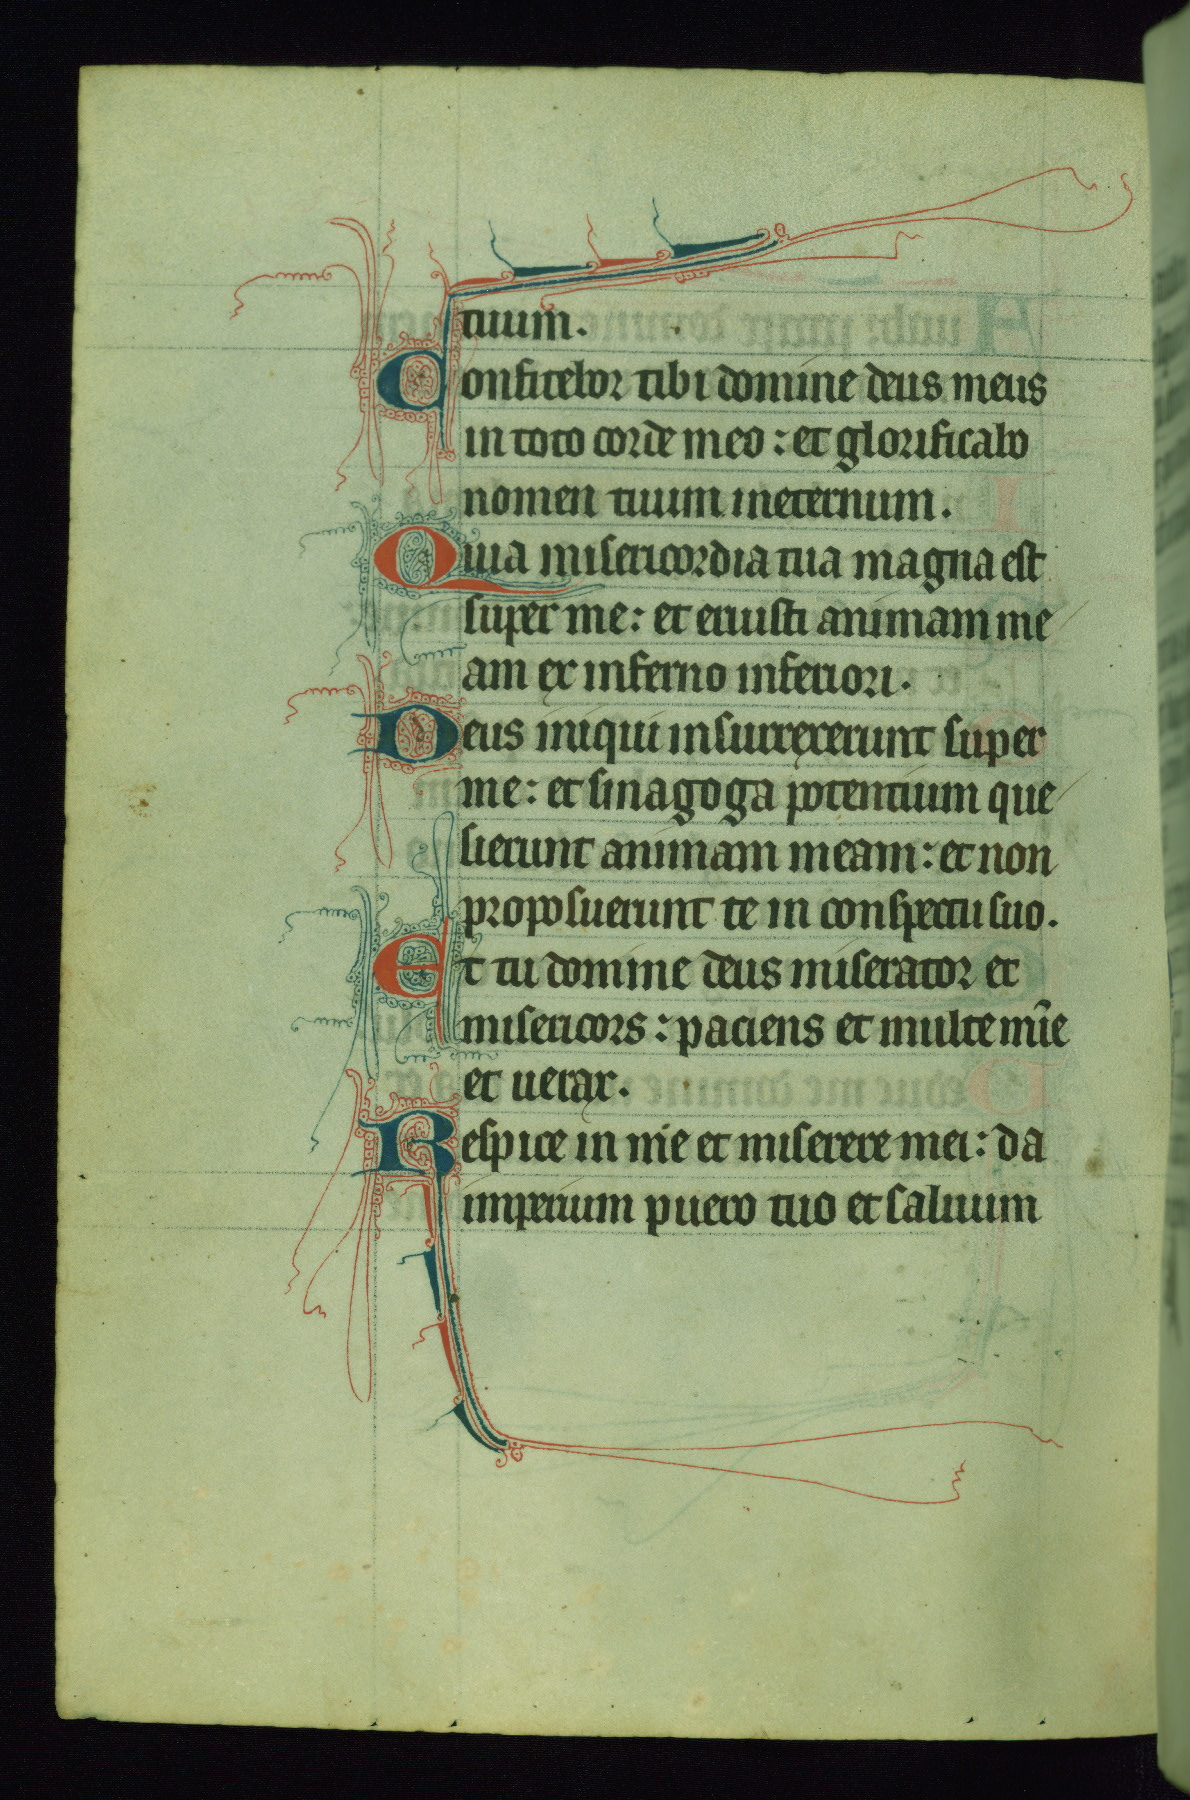 tuum.
Confitebor tibi domine deus meus
in toto corde meo: et glorificabo
nomen tuum ineternum.
Quia misericordia tua magna est
super me: et eruisti animam me
am ex inferno inferiori.
Deus iniqui insurrexerunt super
me: et sinagoga potentium que
sierunt animam meam: et non
proposuerunt te in conspectu suo.
Et tu domine deus miserator et
misericors: paciens et multe mīe
et uerax.
Respice in me et miserere mei: da
imperium puero tuo et saluum